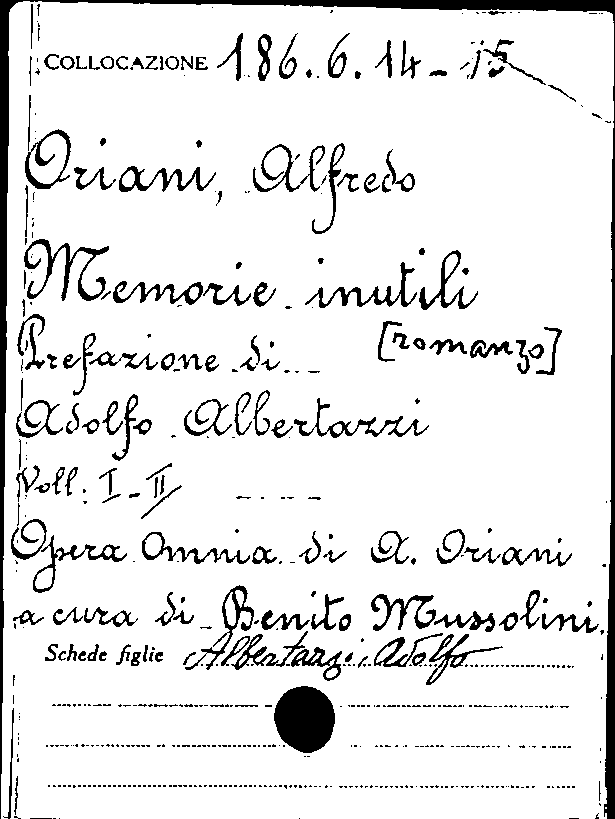 COLLOCAZIONE 186.6.14-15
Oriani, Alfredo
Memorie inutili
[romanzo]
Prefazione di
Adolfo Albertazzi
Voll: I-II
Opera Omnia di A. Oriani
a cura di Benito Mussolini.
Schede figlie Albertazzi, Adolfo